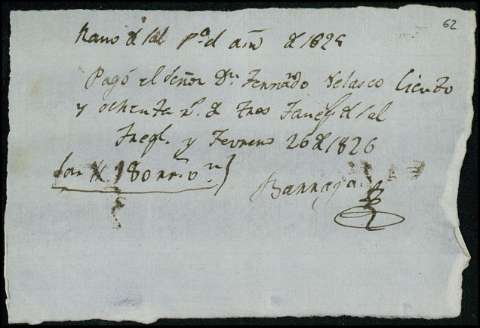 62
Ramo de sal pa el año de 1825
Pagó el Señor Dn. Fernando Velasco Ciento
y ochenta rs. de tres faneqs de sal
y Febrero 26 de 1826
Son 180 rs. vn.
Barraga